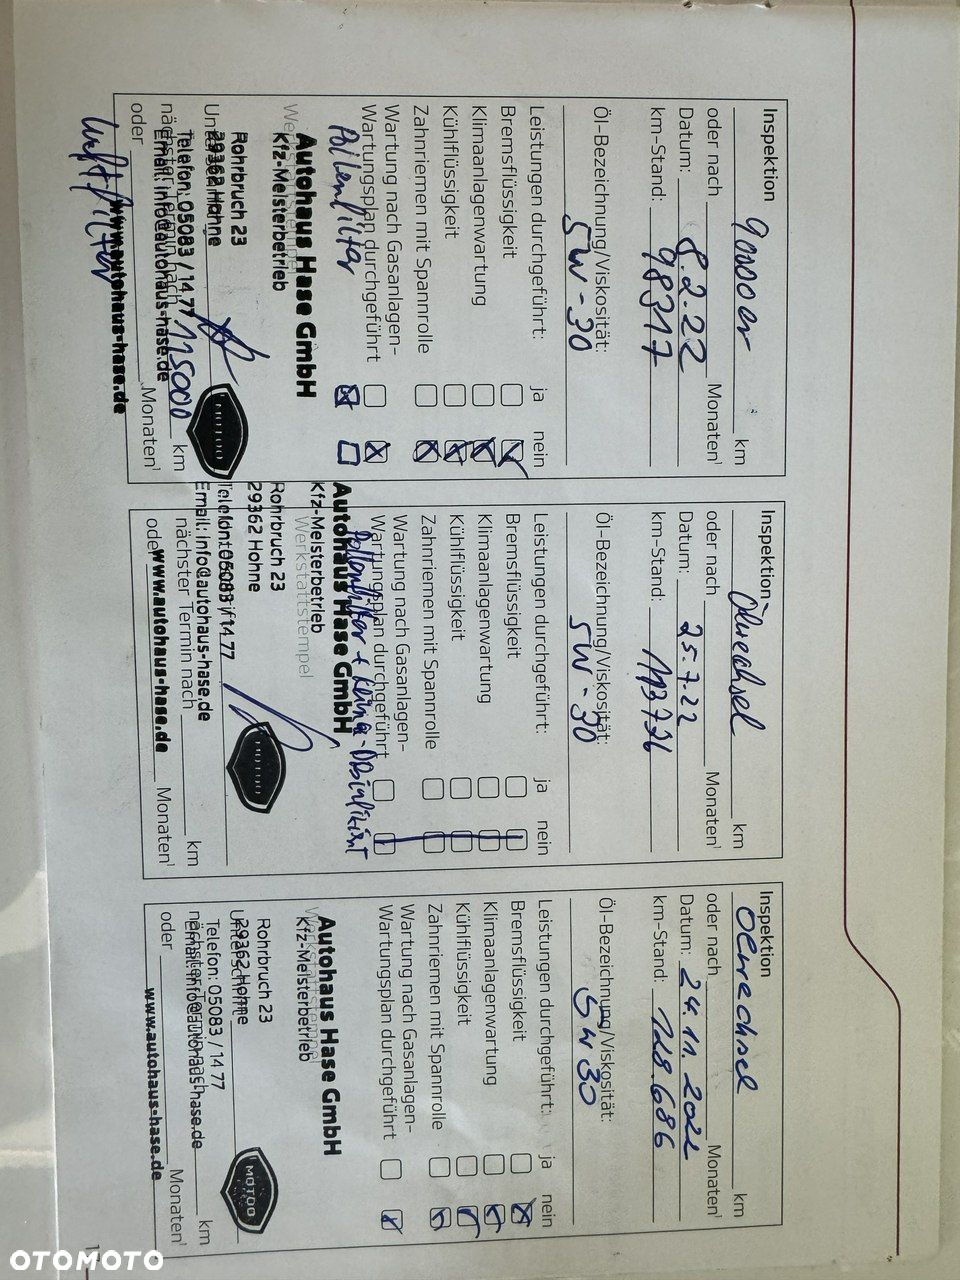 Inspektion 90000er km
oder nach Monaten¹
Datum: 8.2.22
km-Stand: 98317
Öl-Bezeichnung/Viskosität:
5W-30
Leistungen durchgeführt: ja nein
Bremsflüssigkeit
Klimaanlagenwartung
Kühlflüssigkeit
Zahnriemen mit Spannrolle
Wartung nach Gasanlagen-
Wartungsplan durchgeführt
Pollenfilter
Autohaus Hase GmbH
Kfz-Meisterbetrieb
Rohrbruch 23
29362 Hohne
Telefon: 05083 / 14 77
Email: info@autohaus-hase.de
www.autohaus-hase.de
MOTOO
nächster Termin nach 115000 km
oder Monaten¹
Luftfilter
Inspektion Ölwechsel km
oder nach Monaten¹
Datum: 25.7.22
km-Stand: 113776
Öl-Bezeichnung/Viskosität:
5W-30
Leistungen durchgeführt: ja nein
Bremsflüssigkeit
Klimaanlagenwartung
Kühlflüssigkeit
Zahnriemen mit Spannrolle
Wartung nach Gasanlagen-
Wartungsplan durchgeführt
Pollenfilter + Klima-
Autohaus Hase GmbH
Kfz-Meisterbetrieb
Werkstattstempel
Rohrbruch 23
29362 Hohne
Telefon: 05083 / 14 77
Email: info@autohaus-hase.de
www.autohaus-hase.de
MOTOO
nächster Termin nach km
oder Monaten¹
Inspektion Oelwechsel km
oder nach Monaten¹
Datum: 24.11.2022
km-Stand: 128.686
Öl-Bezeichnung/Viskosität:
5W30
Leistungen durchgeführt: ja nein
Bremsflüssigkeit
Klimaanlagenwartung
Kühlflüssigkeit
Zahnriemen mit Spannrolle
Wartung nach Gasanlagen-
Wartungsplan durchgeführt
Autohaus Hase GmbH
Kfz-Meisterbetrieb
Werkstattstempel
Rohrbruch 23
29362 Hohne
Unterschrift
Telefon: 05083 / 14 77
Email: info@autohaus-hase.de
www.autohaus-hase.de
MOTOO
nächster Termin nach km
oder Monaten¹
OTOMOTO